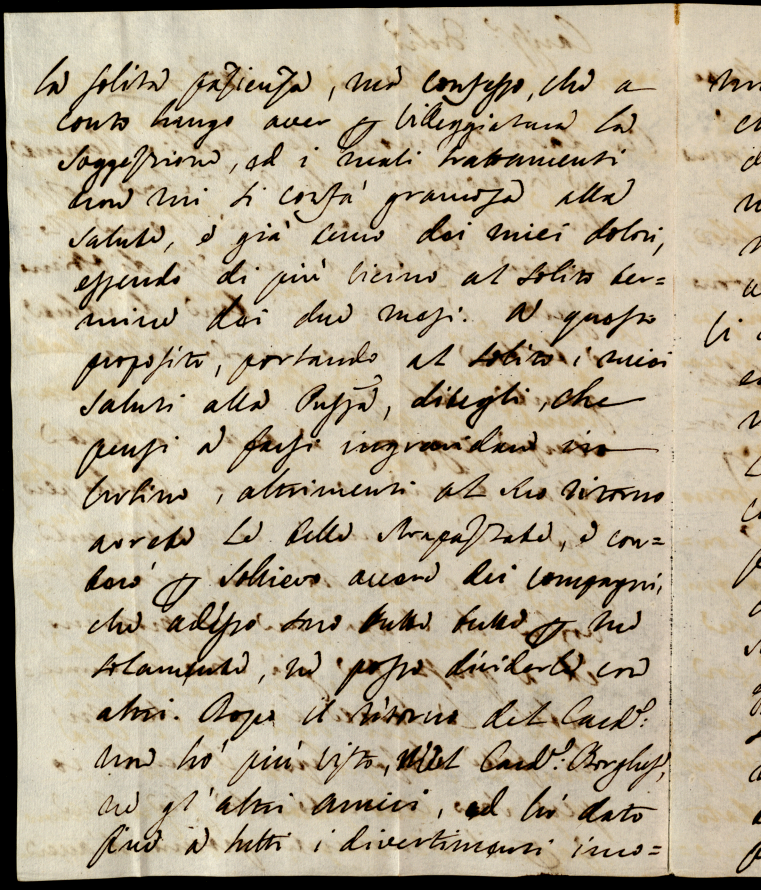 la solita pazienza, ma confesso, che a
conto lungo aver per villeggiatura la
soggezione, ed i mali trattamenti
non mi si confà gran cosa alla
salute, e già temo dei miei dolori,
essendo di più vicino al solito ter=
mine dei due mesi. A questo
proposito, portando al solito i miei
saluti alla, ditegli, che
pensi a farsi ingravidare in
, altrimenti al suo ritorno
avrete le belle strapazzate, e con=
terò per sollievo avere dei compagni,
che adesso sono tutte tutte per me
solamente, nè posso dividerle con
altri. Dopo il ritorno del Card.l:
non hò più visto, nè il Card.l: Borghese,
nè gl'altri amici, ed hò dato
fine a tutti i divertimenti inno=